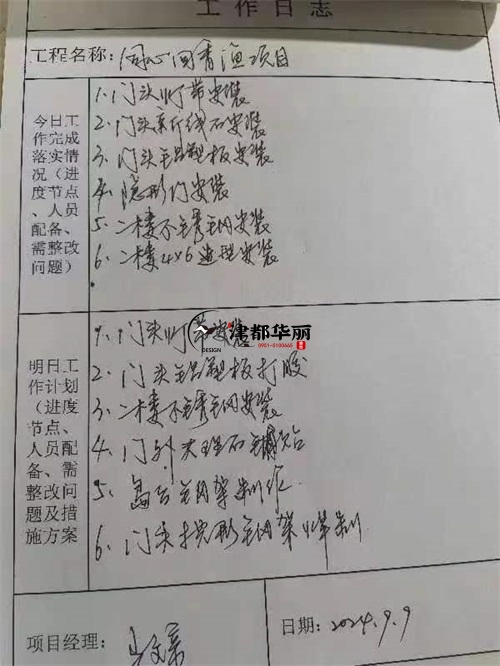 工作日志
工程名称：同心回香渔项目
今日工作完成落实情况（进度节点、人员配备、需整改问题）
1. 门头灯带安装
2. 门头亲行线石安装
3. 门头铝塑板安装
4. 隐形门安装
5. 二楼不锈钢安装
6. 二楼4×6造型安装
明日工作计划（进度节点、人员配备、需整改问题及措施方案
1. 门头灯带安装
津都华丽
DESIGN
0951-5100665
2. 门头铝塑板打胶
3. 二楼不锈钢安装
4. 门外大理石铺贴
5. 岛台钢架制作
6. 门头拱形钢架焊制
项目经理：
日期：2024.9.9